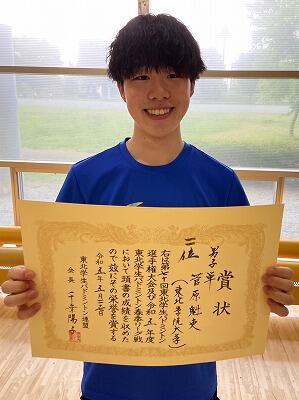 賞状
男子単
三位 菅原魁吏
(東北学院大学)
右は第七十回東北学生バドミントン
選手権大会及び令和五年度
東北学生バドミントン春季リーグ戦
において頭書の成績を収めた
ので茲にその栄誉を賞する
令和五年五月二十一日
東北学生バドミントン連盟
会長